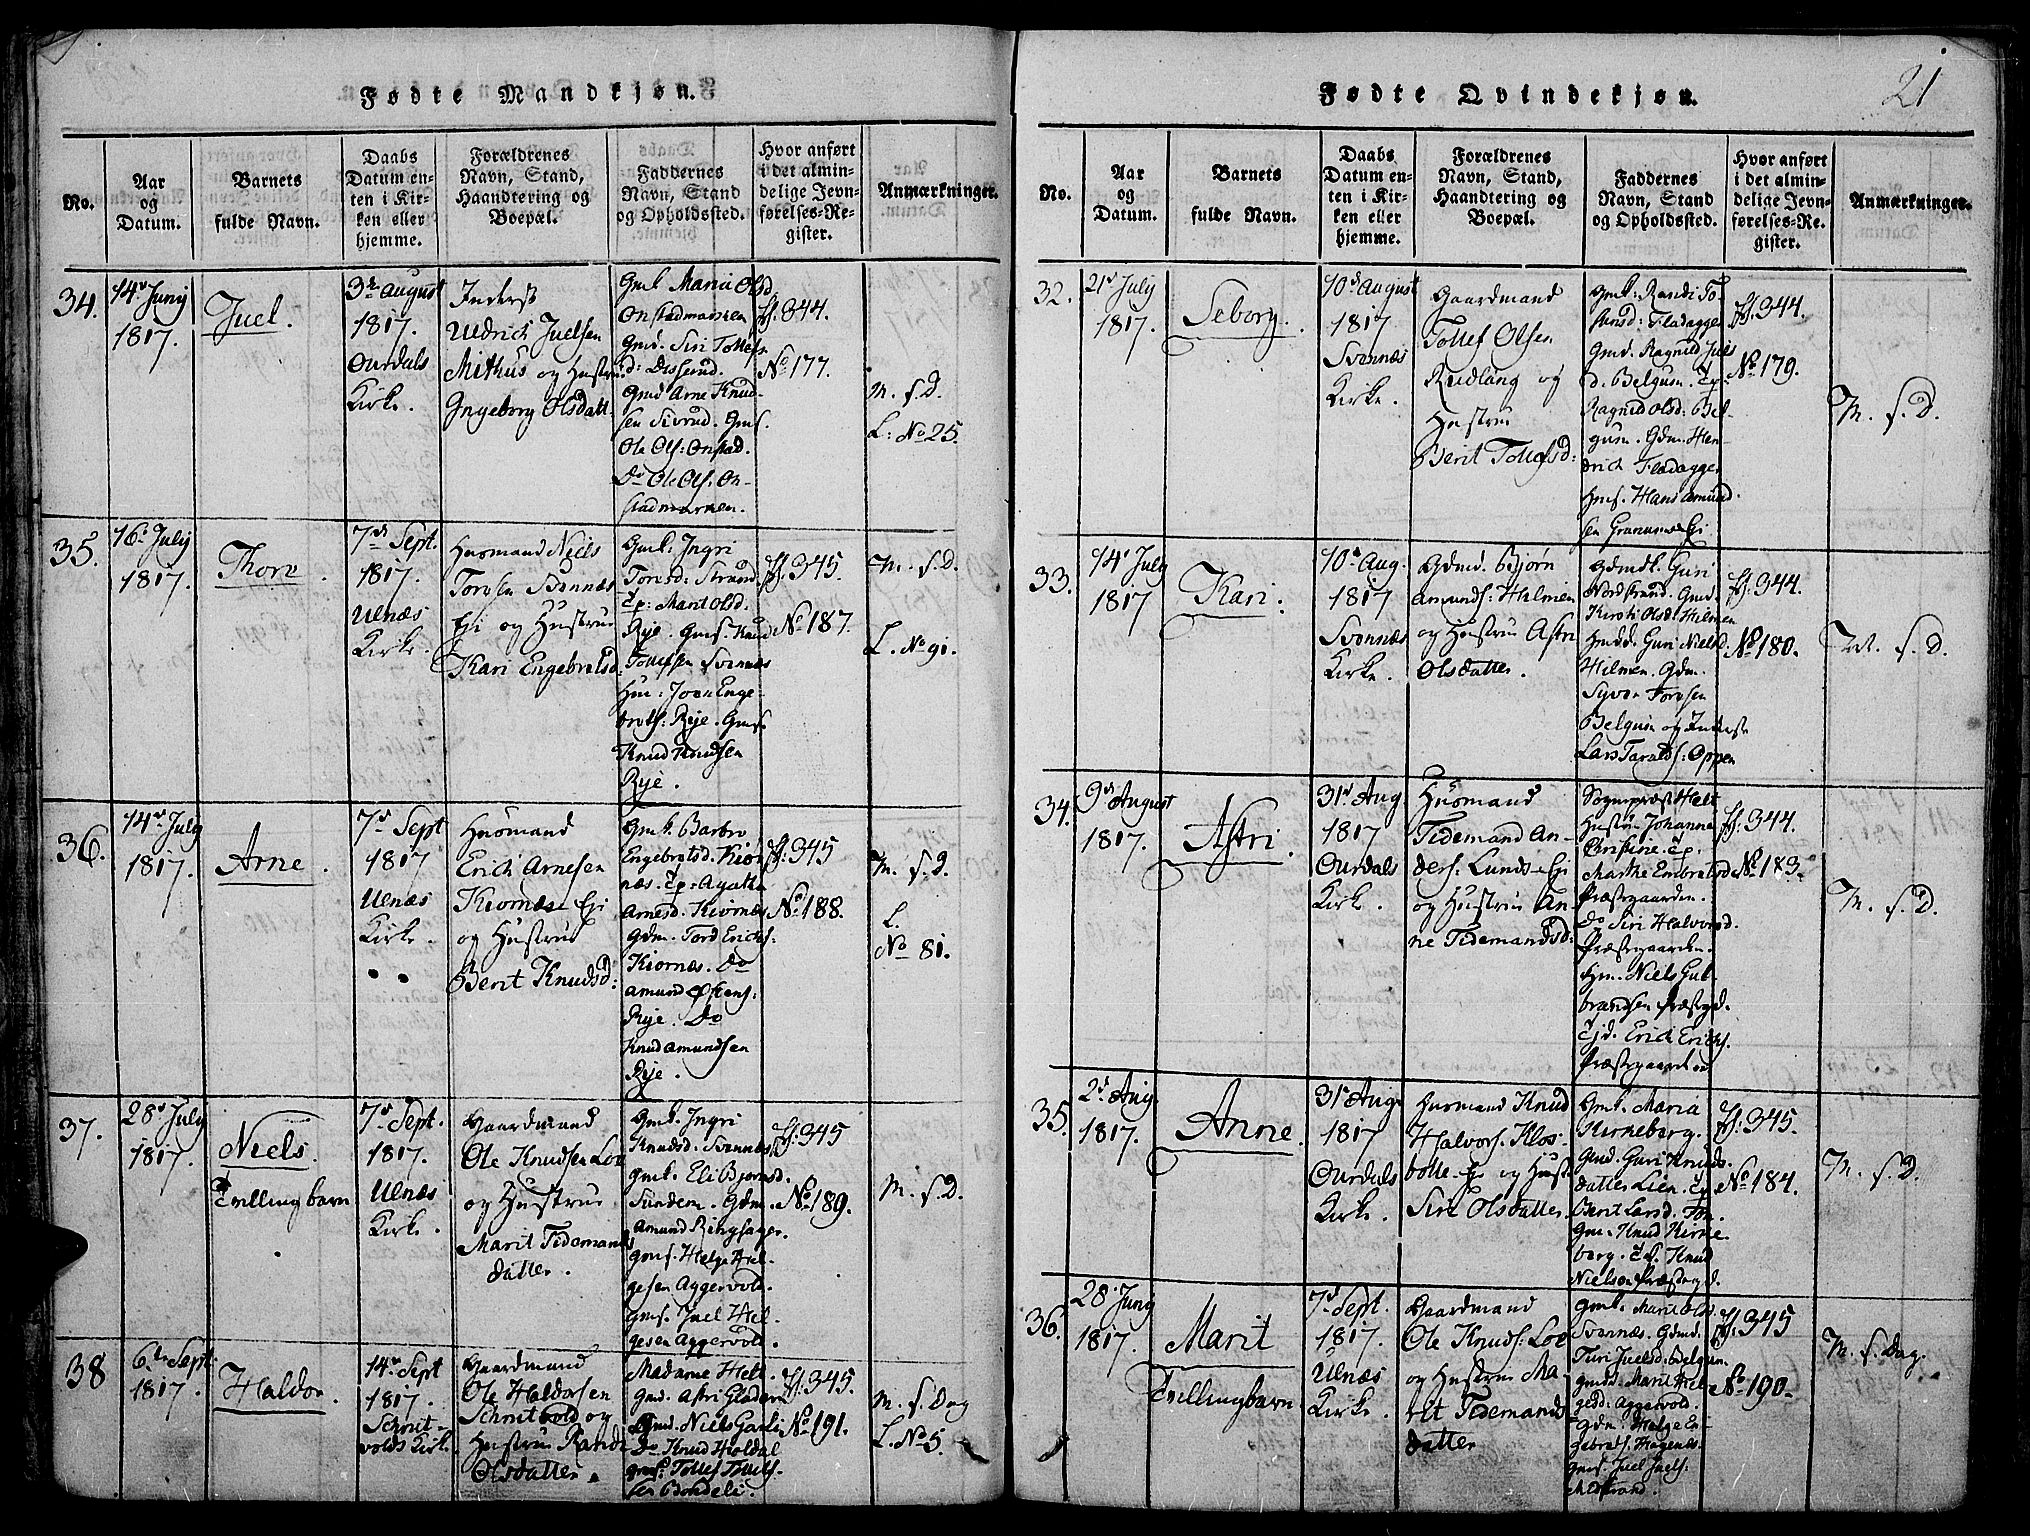 Fødte Mandkjøn.
No.
Aar
og
Datum.
Barnets
fulde Navn.
Daabs
Datum en-
ten i Kir-
ken eller
hjemme.
Forældrenes
Navn, Stand,
Haandtering og
Boepæl.
Faddernes
Navn, Stand
og Opholdssted.
Hvor anført
i det almin-
delige Jevn-
førelses-Re-
gister.
Anmærkninger.
34.
14de Juny
1817.
Juel.
3de August
1817.
Ourdals
Kirke.
Inderst
Uldrich Juelsen
Mithus og Hustru
Ingeborg Olsdatt.
Gmk. Maria Olsd.
Onstadmarken
Gmd. Siri Tollefs
d: Disserud.
Gmd Arne Knud-
sen Sivrud. Gms.
Ole Ols: Onstad.
Do Ole Ols. On-
stadmarken.
Fj. 344.
No 177.
M. f. D.
L: No 25.
35.
16. July
1817.
Thore.
7de Sept.
1817.
Ulnæs
Kirke.
Husmand Niels
Torgsen Svennæs
Eje og Hustrue
Kari Engebretsd.
Gmk. Ingri
Torisd: Strand.
Tp: Marit Olsd.
Rye. Gms. Knud
Tollefsen Svennæs
Hus: Joen Enge-
brets: Rye. Gms.
Knud Knudsen
Rye.
Fj. 345.
No 187.
M. f. D.
L. No 91.
36.
14de July
1817.
Arne.
7de Sept
1817
Ulnæs
Kirke.
Husmand
Erich Arnesen
Kiornæs Eje
og Hustrue
Berit Knudsd:
Gmk. Barbro
Engebretsd. Kior-
næs. Tp: Agathe
Arnesd. Kiornæs
Gdm. Tord Erichs:
Kiornæs. Do
Amund Ostens:
Rye. Do
Knud Amundsen
Rye.
Fj. 345
No 188.
M. f. D.
L.
No 81.
37.
28de July
1817.
Niels.
Tvillingbarn
7de Sept.
1817.
Ulnæs
Kirke.
Gaardmand
Ole Knudsen Loe
og Hustrue
Marit Tidemands
datter.
Gmk. Ingri
Knudsd. Svennæs
Gmk. Eli Bjørnsd.
Sunden. Gdm.
Amund Ringsager.
Gms. Helge Hel-
gesen Aggervold.
Gms. Juel Hel-
gesen Aggervold.
Fj. 345
No 189.
M. f. D.
38
6de Sept.
1817.
Haldor.
14de Sept
1817.
Schrut-
volds Kirk.
Gaardmand
Ole Haldorsen
Schrutvold og
Hustrue Randi
Olsdatter.
Madame Helt
Gmd. Astri Gladen
Gmd. Niels Garli
Do Knud Hældal
Gms: Tollef Tollef-
sen Bondeli.
Fj. 345.
No 191.
M. f. Dag
L. No 5.
Fødte Qvindekjøn.
21
No.
Aar
og
Datum.
Barnets
fulde Navn.
Daabs
Datum en-
ten i Kir-
ken eller
hjemme.
Forældrenes
Navn, Stand,
Haandtering og
Boepæl.
Faddernes
Navn, Stand
og Opholdssted.
Hvor anført
i det almin-
delige Jevn-
førelses-Re-
gister.
Anmærkninger.
32.
21de July
1817.
Seborg.
10de August
1817
Svennæs
Kirke.
Gaardmand
Tollef Olsen
Rudlang og
Hustrue
Berit Tollefsd:
Gmk: Randi To-
Fladagger
Gmd. Ragnild Juels
d. Belgum. Tp.
Ragnild Olsd: Bel-
gum. Gdm. Hen-
drich Fladagger
Gms. Hans Amund-
sen Granum Eje
Fj. 344.
No 179.
M. f. D.
33.
14de July
1817.
Kari.
10de Aug.
1817
Svennæs
Kirke.
Gdmd. Bjørn
Amunds: Hilmen
og Hustrue Astri
Olsdatter.
Gdmdk. Guri
Nordstrand. Gmd.
Kirsti Olsd: Hilmen
Gmdd. Guri Nielsd.
Hilmen. Gdm.
Syver Torgsen
Belgum og Inderst
Lars Taralds: Oppen
Fj. 344.
No 180.
M. f. D.
34.
9de August
1817.
Astri.
31de Aug.
1817
Ourdals
Kirke.
Husmand
Tidemand An-
ders: Lunds Eje
og Hustrue An-
ne Tidemandsd:
Sognepræst Helt
Hustru Johanna
Christine. Tp.
Marthe Embretsd.
Præstegaarden.
Do Siri Halvorsd.
Præstegaarden.
Ejm. Niels Gul-
brandsen Præstegd.
Tjd. Erich Erichs.
Præstegaarden
Fj. 344.
No 183.
M. f. D.
35.
2de Aug.
1817.
Anne.
31de Aug.
1817
Ourdals
Kirke.
Husmand Knud
Halvors. Klos-
bølle Eje og Hust
Siri Olsdatter.
Gmk. Maria
Kirkeberg.
Gmd. Guri Knuds-
datter Lien. Tp
Berit Larsd.
Gm. Knud Kirke-
berg. Td. Knud
Nielsen Præstegd.
Fj. 345.
No 184.
M. f. D.
36.
28de Juny
1817.
Marit
Tvillingbarn
7de Sept.
1817.
Ulnæs
Kirke.
Gaardmand
Ole Knuds: Loe
og Hustrue Ma-
rit Tidemands
datter
Gmk. Marit Olsd.
Svennæs. Gdmd.
Turi Juelsd. Belgum
Gmdd. Marit Hel-
gesd. Aggervold.
Gdm. Helge En-
gebrets. Hagenes.
Gms. Juel Juels.
Fj. 345
No 190.
M. f. Dag.